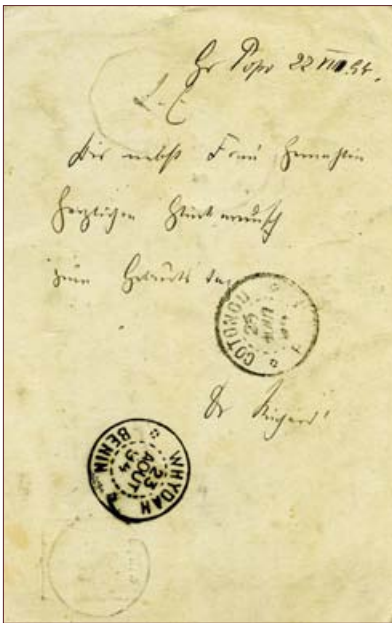 Gr Popo 22 VIII 94.
L. C
Dir nebst Frau Gemahlin
herzlichen Glückwunsch
zum Geburts tag
COTONOU
25
AOUT
Richard
WHYDAH
23
AOUT
94
BENIN